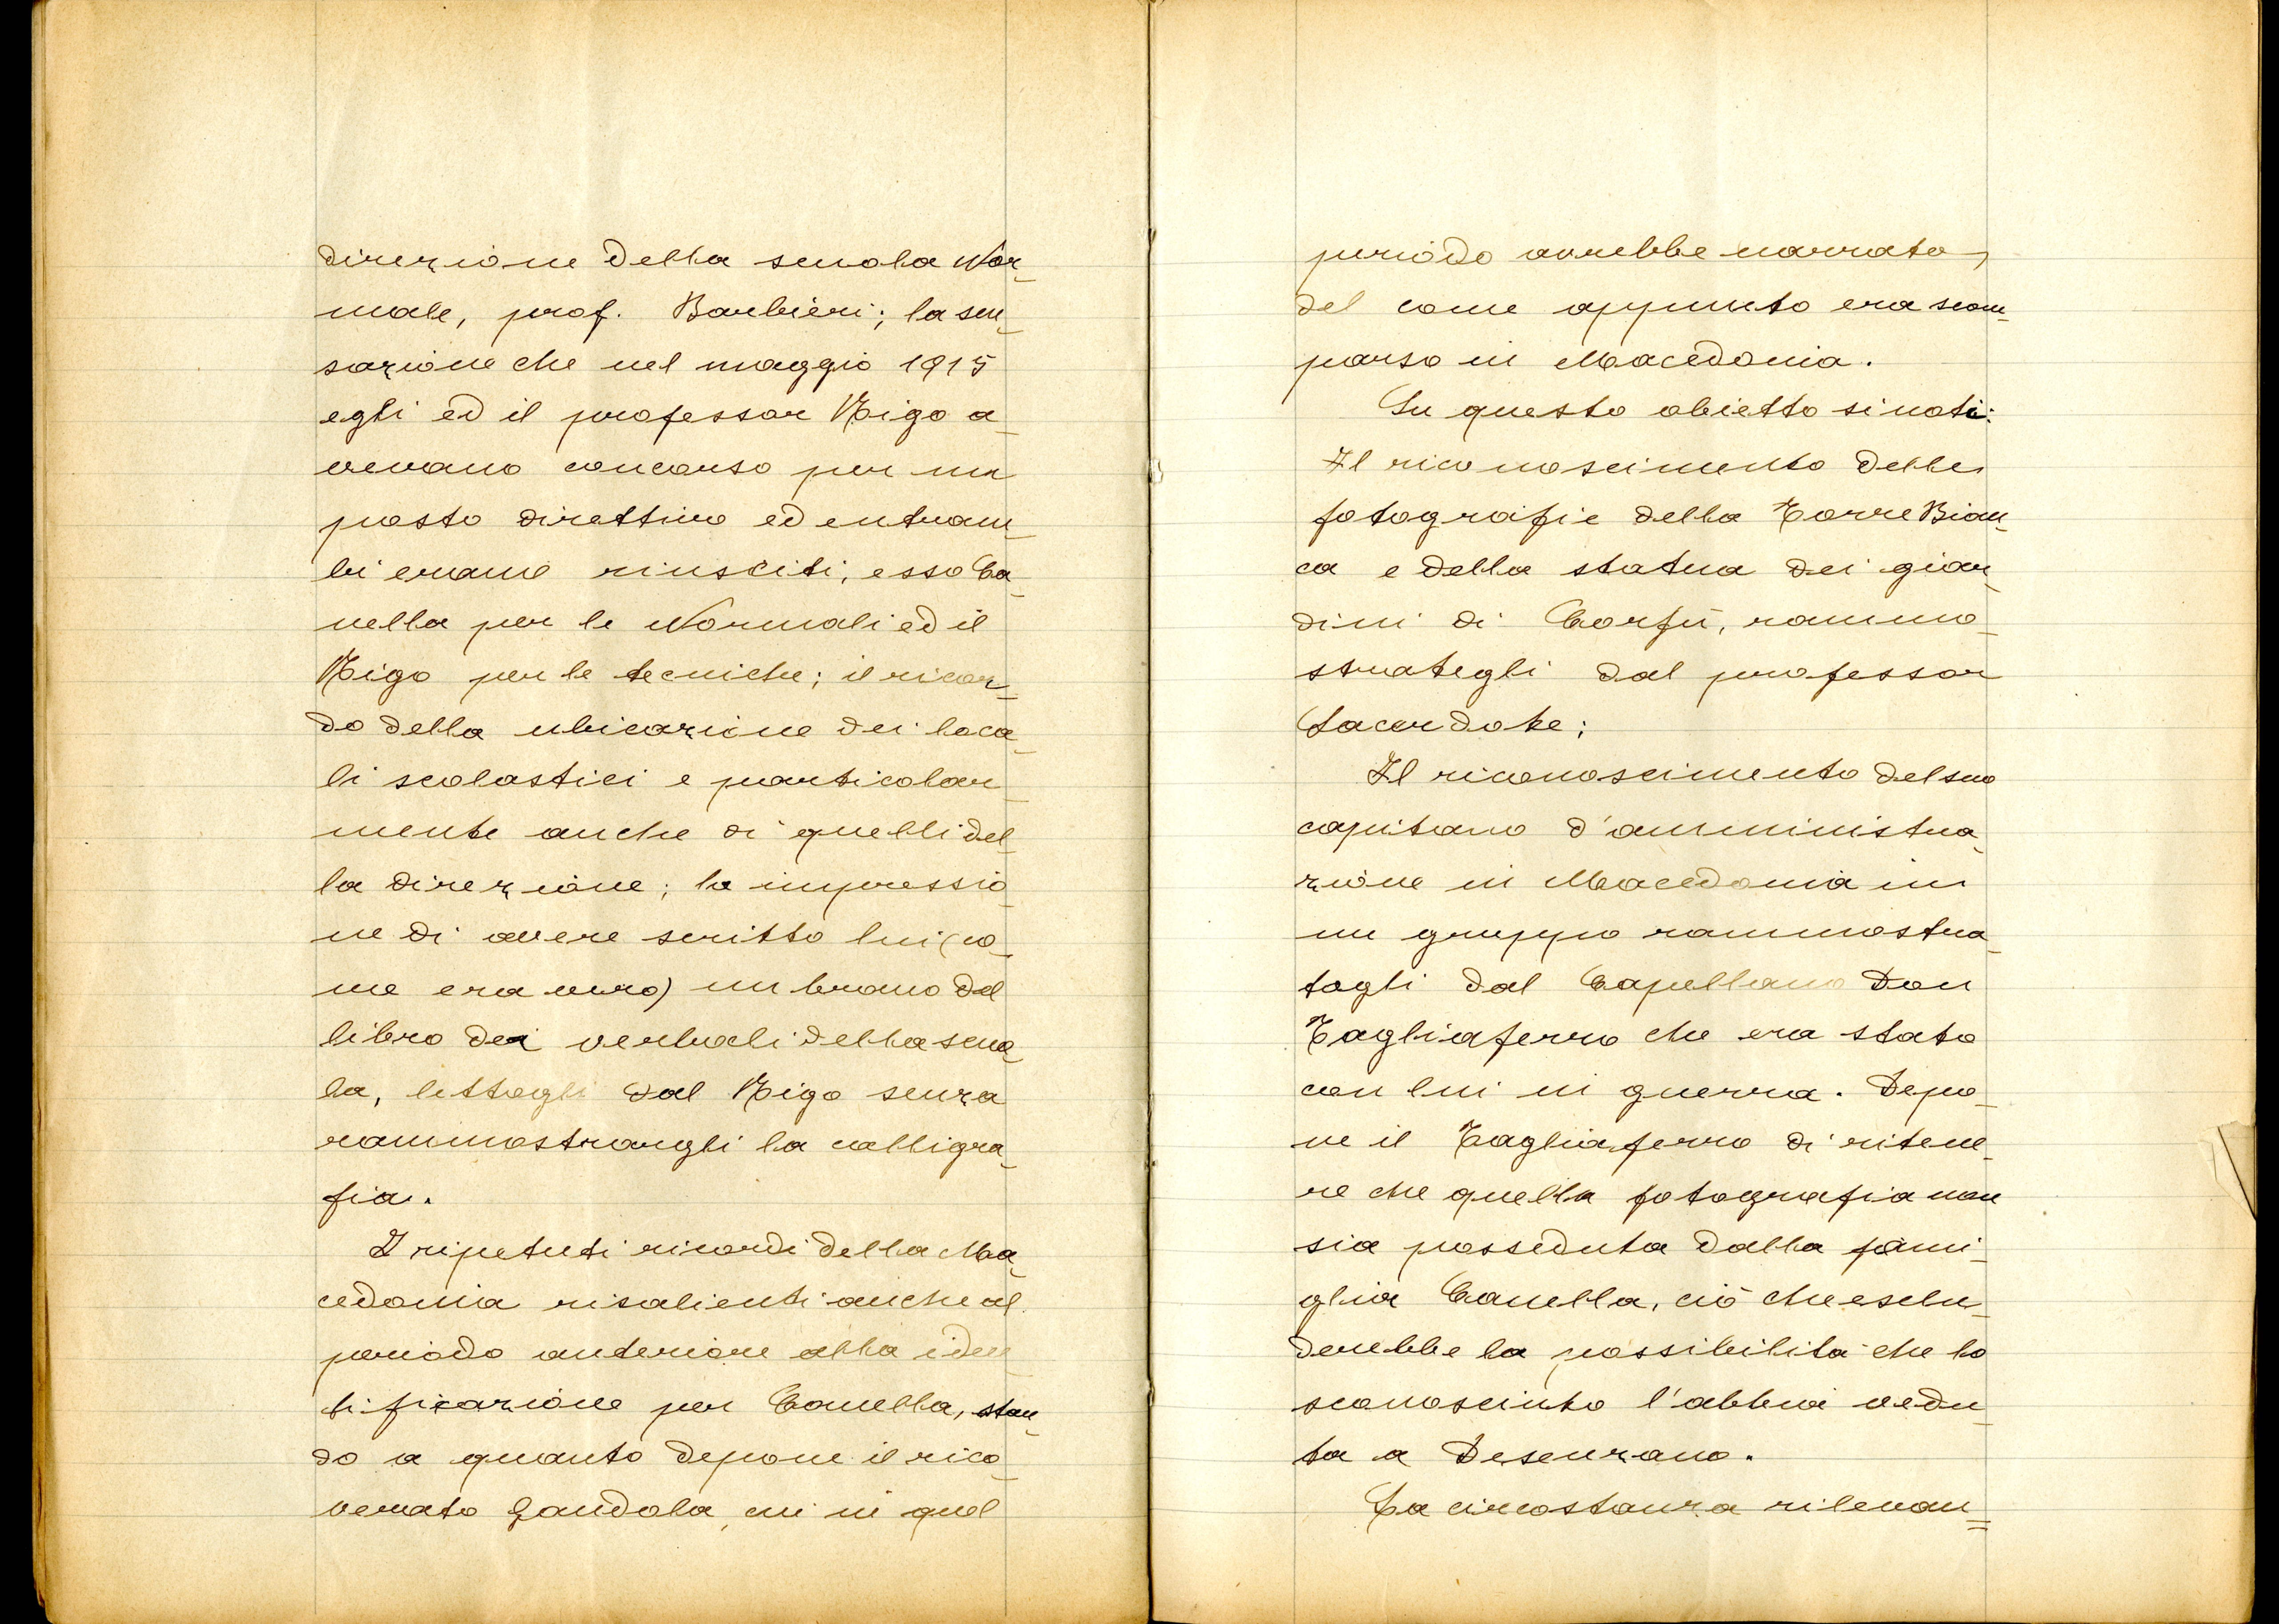 direzione della scuola Nor_
male, prof. Barbieri; la sen_
sazione che nel maggio 1915
egli ed il professor Rigo a_
vevano concorso per un
posto direttivo ed entram_
bi erano riusciti, esso Ca_
nella per le Normali ed il
Rigo per le tecniche; il ricor_
do della ubicazione dei loca_
li scolastici e particolar_
mente anche di quelli del_
la direzione; la impressio_
ne di avere scritto lui (co_
me era vero) un brano del
libro dei verbali della scuo_
la, lettogli dal Rigo senza
rammostrargli la calligra_
fia.
I ripetuti ricordi della Ma_
cedonia risalienti anche al
periodo anteriore alla iden
tificazione per Canella, stan_
do a quanto depone il rico_
verato Gandola, cui in quel
periodo avrebbe narrato,
del come appunto era scom_
parso in Macedonia.
Su questo obietto si noti:
Il riconoscimento delle
fotografie della Torre Bian_
ca e della statua dei giar_
dini di Corfù, rammo_
strategli dal professor
Sacerdote;
Il riconoscimento del suo
capitano d'amministra_
zione in Macedonia in
un gruppo rammostra_
togli dal Capellano Don
Tagliaferro che era stato
con lui in guerra. Depo_
ne il Tagliaferro di ritene_
re che quella fotografia non
sia posseduta dalla fami_
glia Canella, ciò che esclu_
derebbe la possibilità che lo
sconosciuto l'abbia vedu_
ta a Desenzano.
La circostanza rilevan=